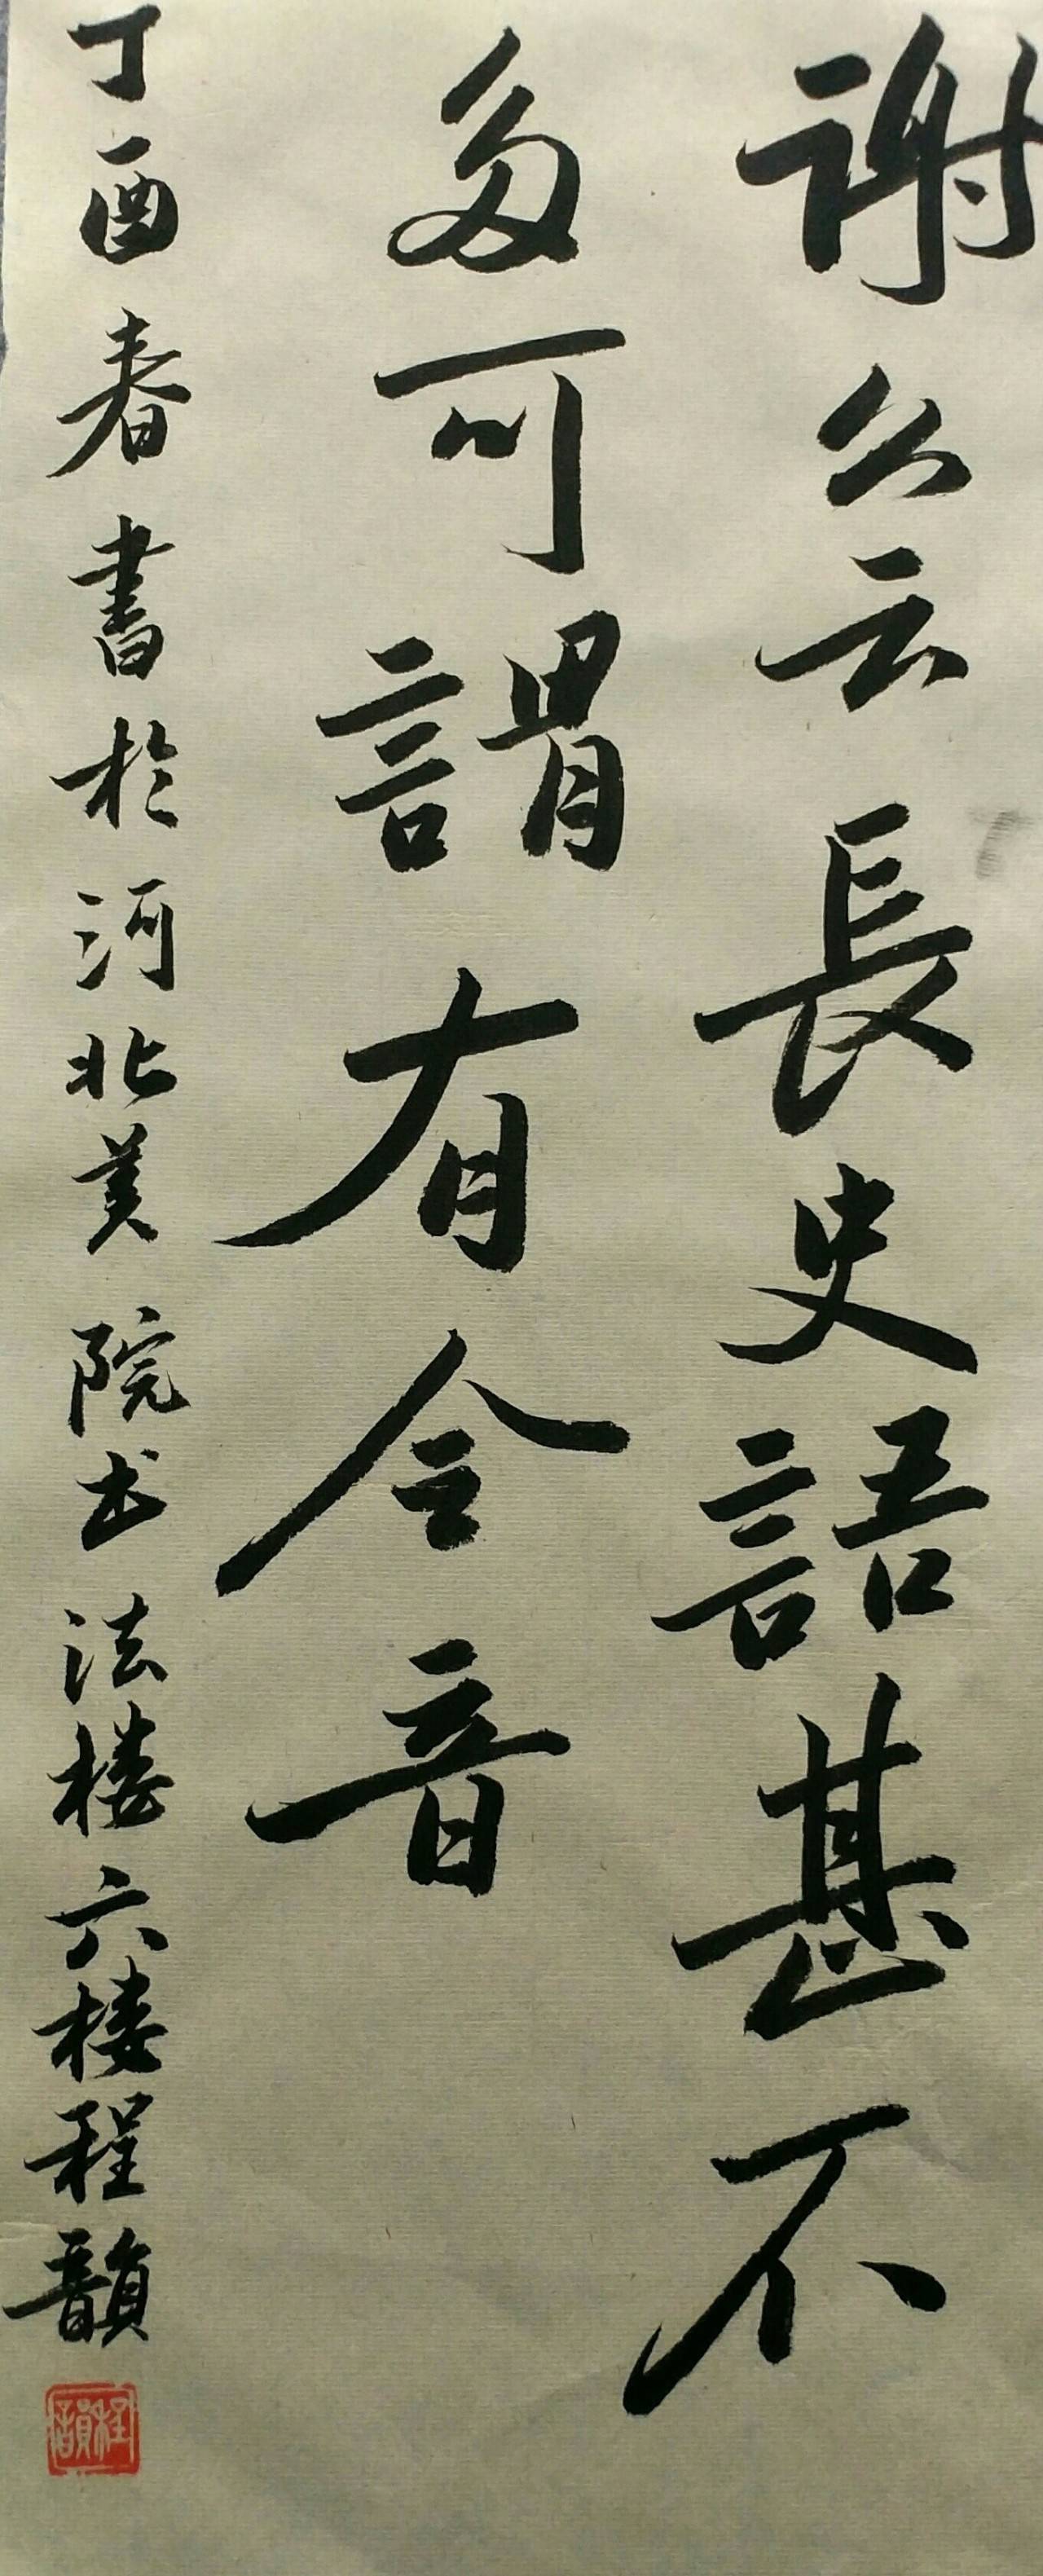 謝公云長史語甚不
多可謂有令音
丁酉春書於河北美院书法楼六楼程韻
程韻